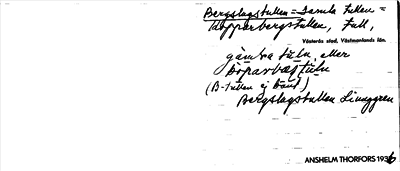 Bergslagstullen = Gamla Tullen =
Kopparbergstullen, Tull,
Västerås stad, Västmanlands län.
gamla tuln eller
(B-tullen ej känt)
Bergslagstullen Linnggren
ANSHELM THORFORS 1936